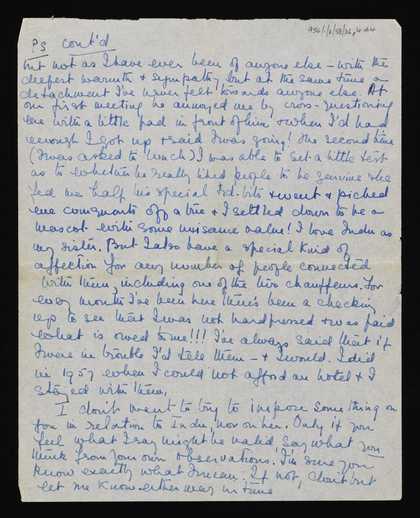 Ps cont'd
but not as I have ever been of anyone else – with the
deepest warmth & sympathy but at the same time a
detachment I've never felt towards anyone else. At
our first meeting he annoyed me by cross-questioning
me with a little pad in front of him & when I'd had
enough I got up & said I was going! The second time
(I was asked to lunch) I was able to set a little test
as to whether he really liked people to be genuine & he
fed me half his special tid-bits & went & picked
me comquonts off a tree & I settled down to be a
mascot with some nuisance value! I love Indu as
my sister. But I also have a special kind of
affection for any number of people connected
with them, including one of the two chauffeurs. For
every month I've been here there's been a checking
up to see that I was not hard pressed & was paid
what is owed to me!!! I've always said that if
I were in trouble I'd tell them – & I would. I did
in 1957 when I could not afford an hotel & I
stayed with them.
I don't want to try to impose something on
you in relation to Indu, nor on her. Only if you
feel what I say might be valid, say what you
think from your own observations. I'm sure you
know exactly what I mean. If not, don't but
let me know either way in time